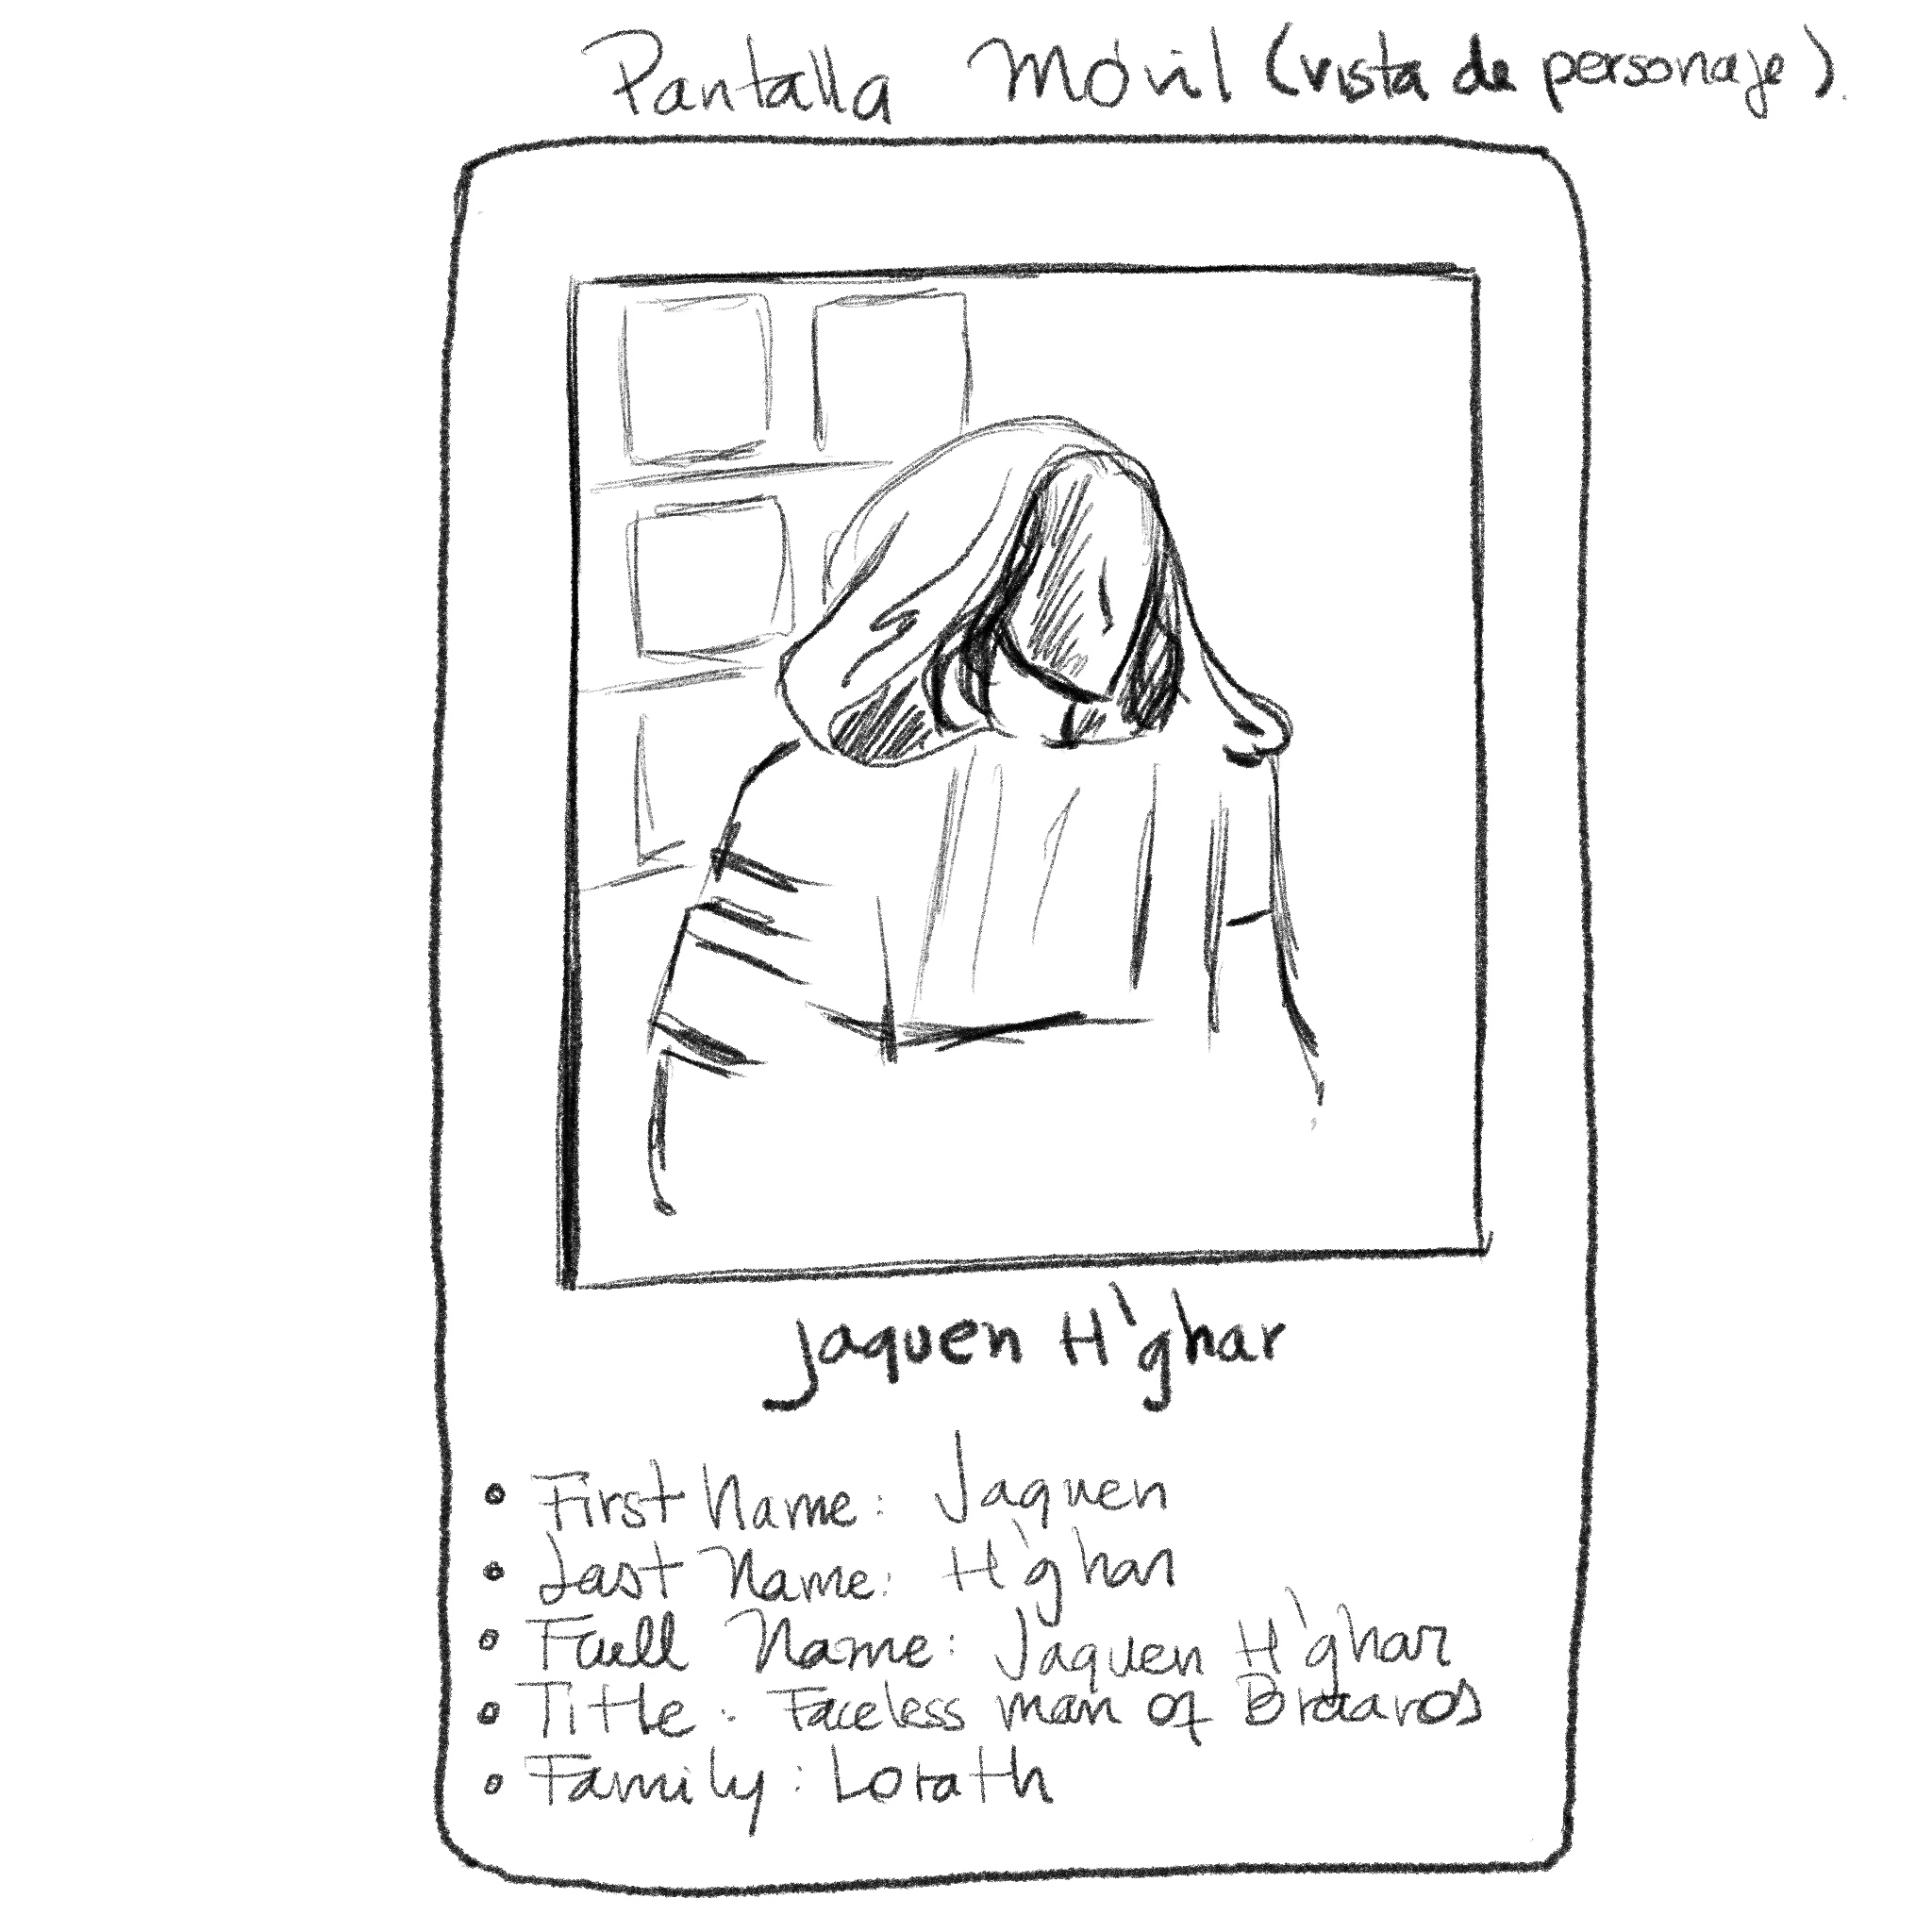 Pantalla Móvil (vista de personaje).
Jaquen H'ghar
First Name: Jaquen
Last Name: H'ghar
Full Name: Jaquen H'ghar
Title: Faceless man of Braavos
Family: Lorath